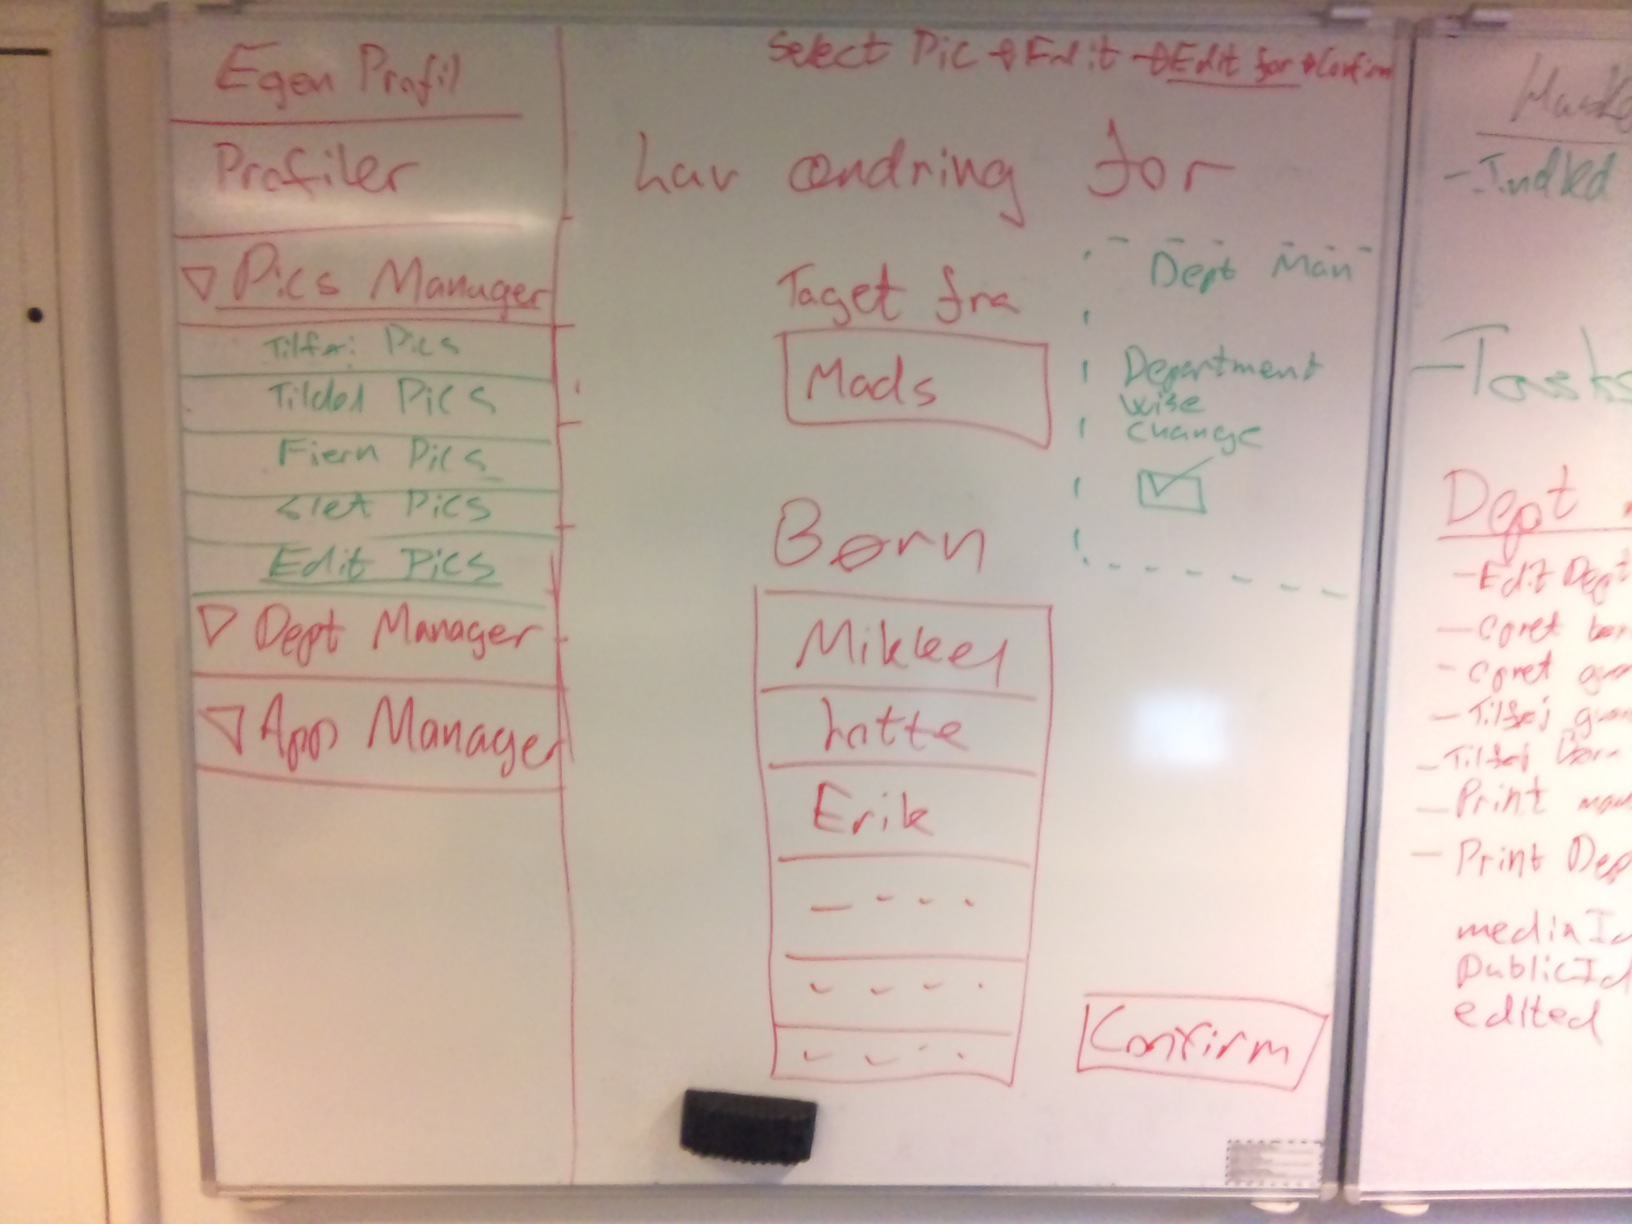 Egen Profil
Profiler
Pics Manager
Tilføj Pics
Tildel Pics
Fjern Pics
Slet Pics
Edit Pics
Dept Manager
App Manager
Select Pic → Edit → Edit for → Confirm
Lav ændring for
Taget fra
Mads
Dept Man
Department
wise
change
Børn
Mikkel
Lotte
Erik
Confirm
- Tasks
Dept
- Edit Dept
- Opret
- Opret
- Tilføj
- Tilføj Børn
- Print
- Print Dep
mediaId
publicId
edited